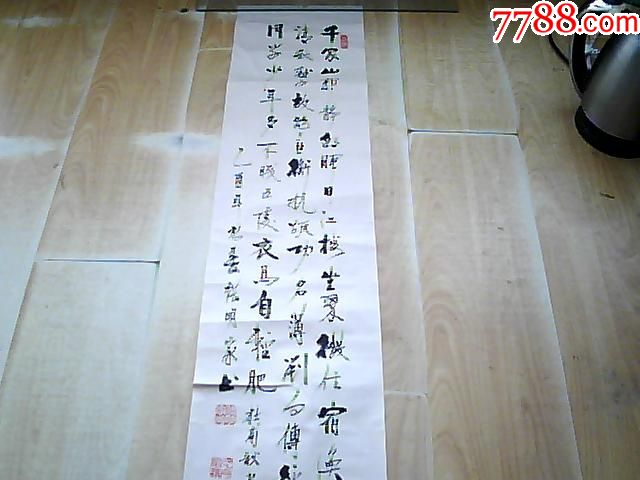 7788.com
千家山郭静朝晖日江楼坐翠微信宿渔
清秋燕故飞匡衡抗疏功名薄刘向传经
同学少年多不贱五陵衣马自轻肥 杜甫秋
乙酉年 明家书